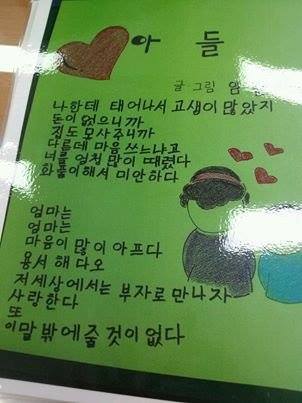 아들
글 그림 임
나한테 태어나서 고생이 많았지
돈이 없으니까
집도 못사주니까
다른데 마음쓰느냐고
너를 엄청 많이 때렸다
화풀이해서 미안하다
엄마는
엄마는
마음이 많이 아프다
용서해다오
저 세상에서는 부자로 만나자
사랑한다
또
이말 밖에 줄 것이 없다